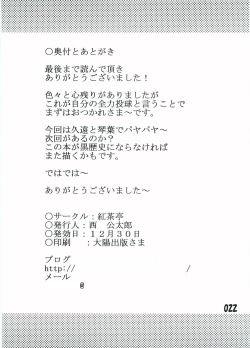 〇奥付とあとがき
最後まで読んで頂き
ありがとうございました!
色々と心残りがありましたが
これが自分の全力投球と言うことで
まずはおつかれさま〜です。
今回は久遠と琴葉でパヤパヤ〜
次回があるのか?
この本が黒歴史にならなければ
また描くかもです。
ではでは〜
ありがとうございました〜
〇サークル:紅茶亭
〇発行人:西 公太郎
〇発効日:12月30日
〇印刷 :大陽出版さま
ブログ
http:// /
メール
@
022